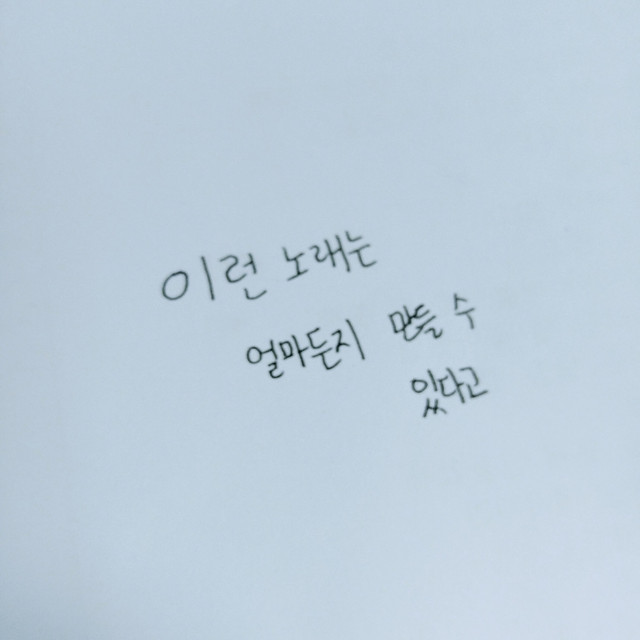 이런 노래는
얼마든지 만들 수
있다고